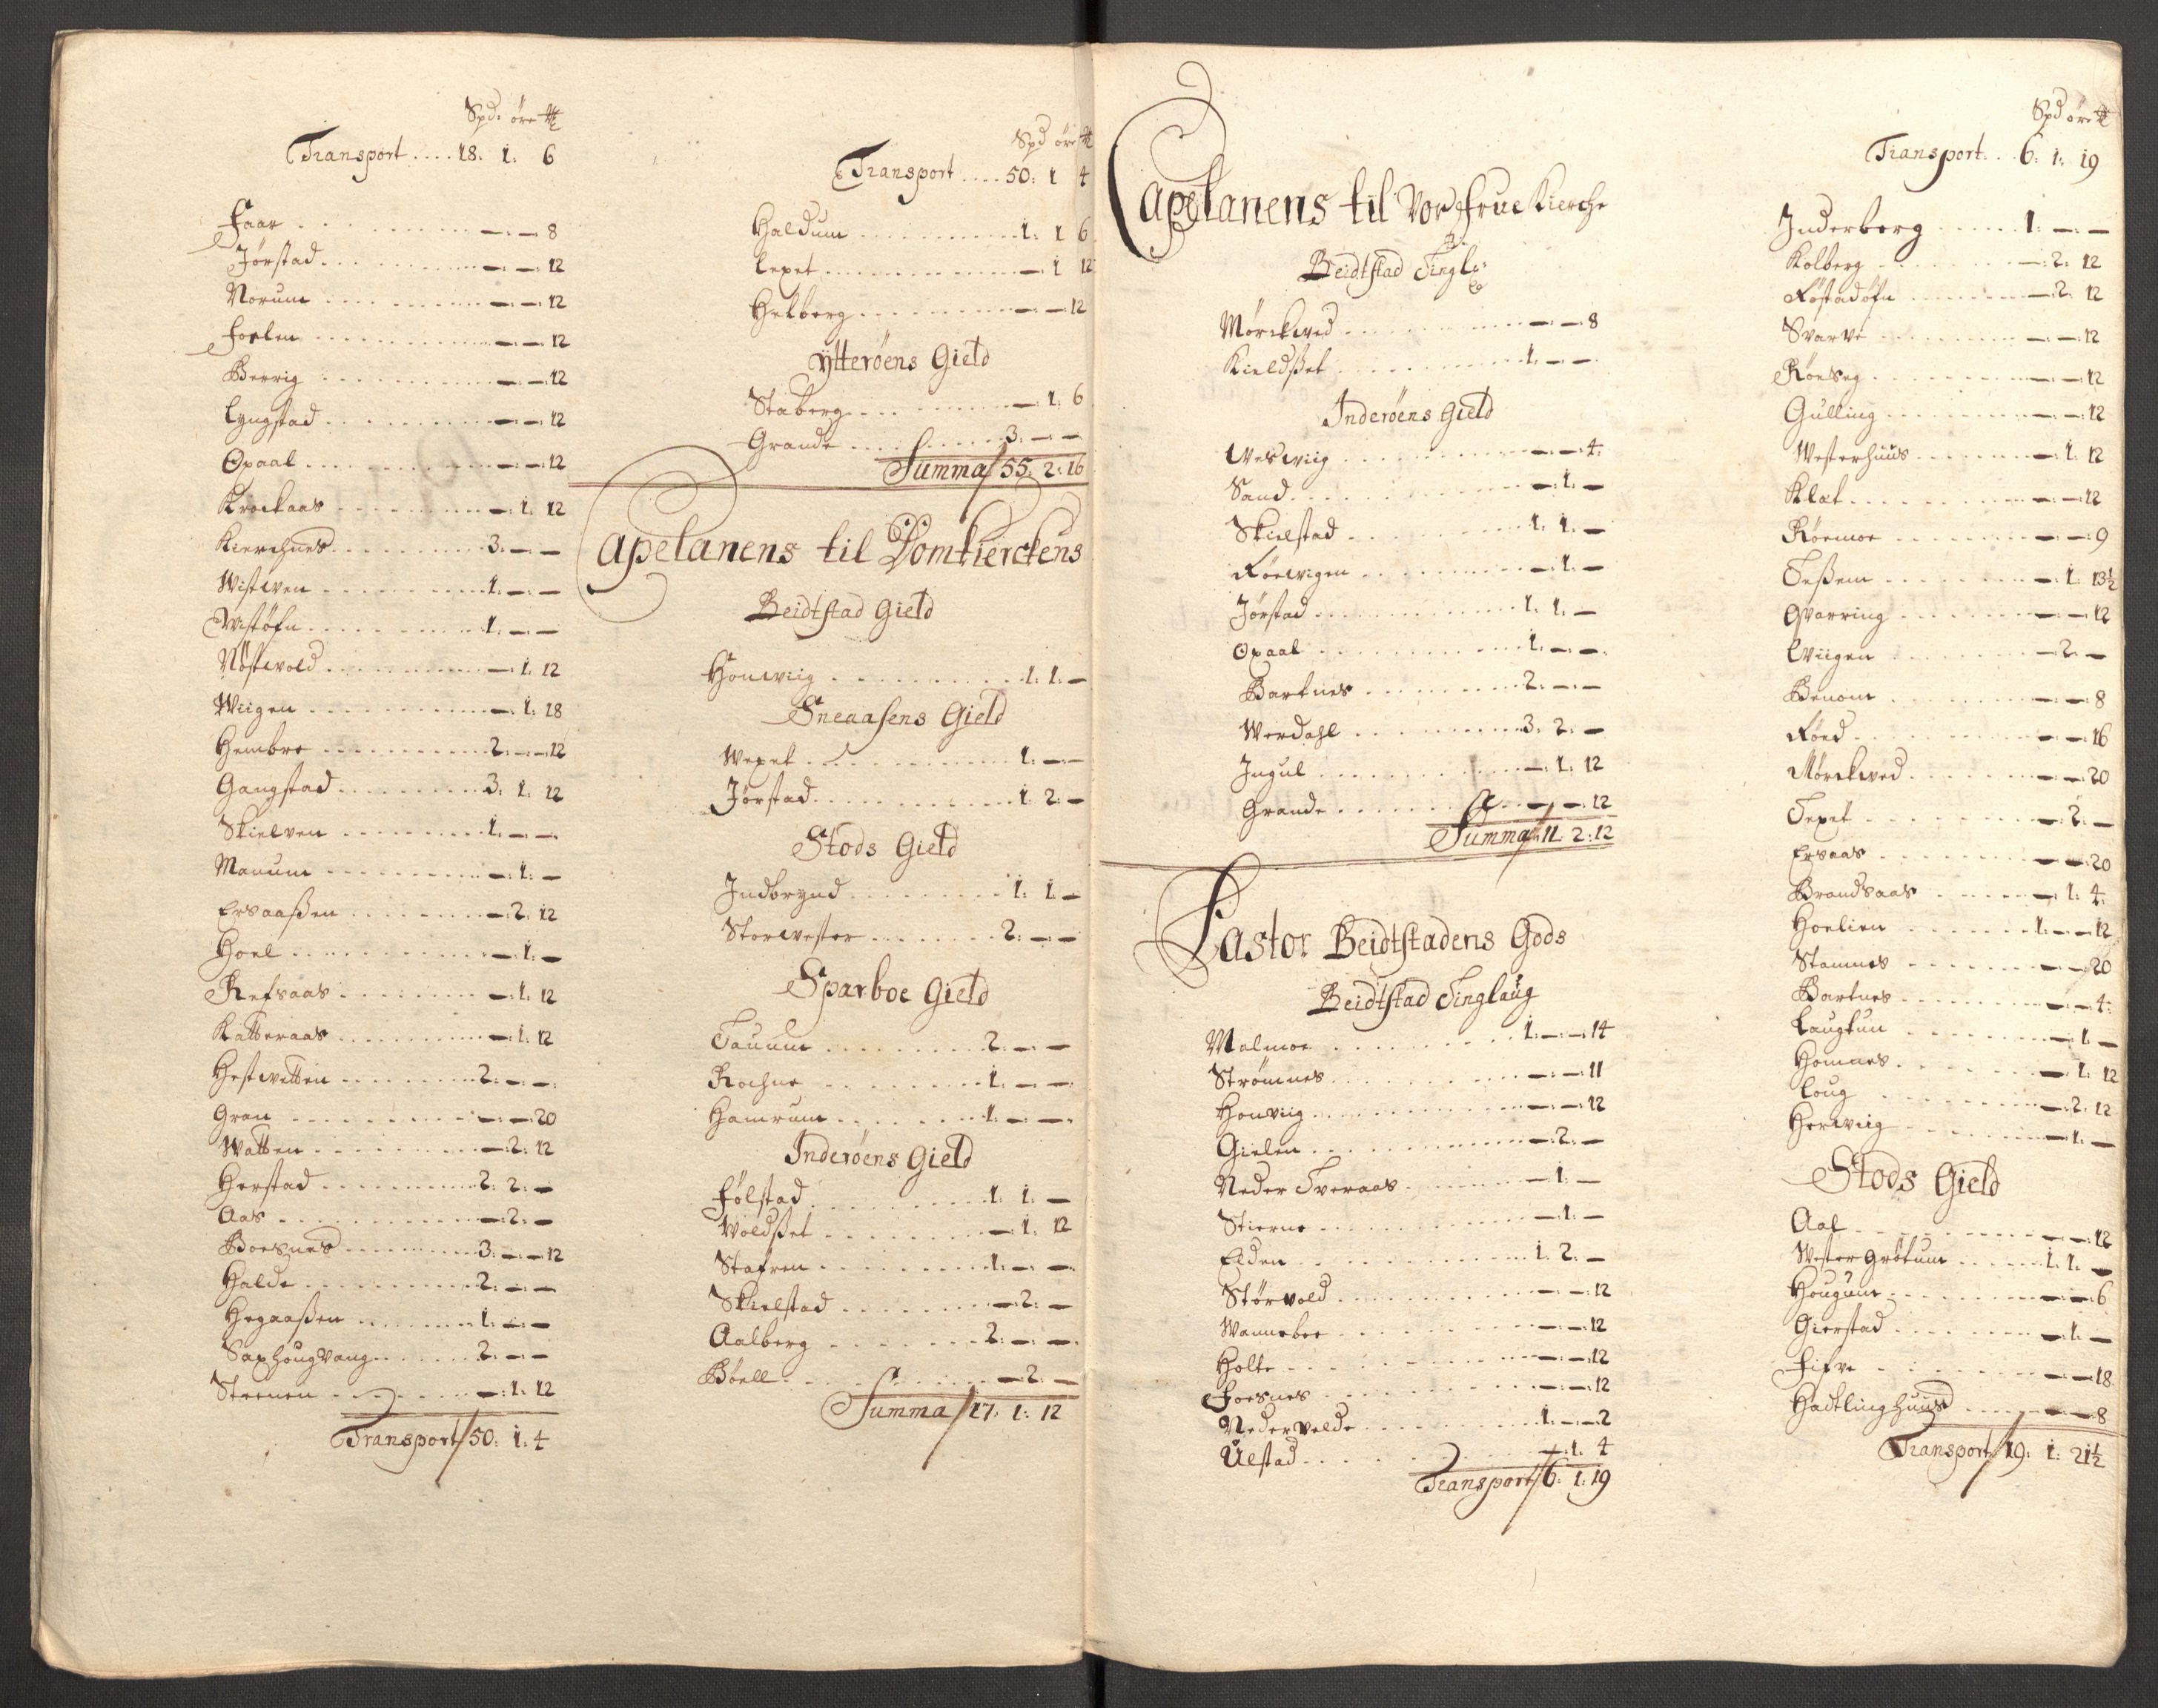 Spd: öre
Transport .... 18: 1: 6
Faar — — 8
Jörstad — — 12
Norum — — 12
Foslen — — 12
Berrig — — 12
Lyngstad — — 12
Opaal — — 12
Krockaas — 1: 12
Kierchnes 3: — —
Wistwen 1: — —
Wistöfn 1: — —
Nöstwold — 1: 12
Wiigen — 1: 18
Hembre 2: — 12
Gangstad 3: 1: 12
Skielven 1: — —
Manum — 1: —
Ersaaßen — 2: 12
Hoel — 1: —
Refsaas — 1: 12
Katteraas — 1: 12
Hestwetten 2: — —
Gran — — 20
Watten — 2: 12
Herstad 2: 2: —
Aas — 2: —
Boesnes 3: — 12
Halde 2: — —
Hegaaßen 1: — —
Saxhougvang 2: — —
Steenen — 1: 12
Transport 50: 1: 4
Spd öre
Transport .... 50: 1 4
Haldum 1: 1 6
Lexet — 1 12
Helberg — — 12
Ytteröens Gield
Staberg — 1: 6
Grande 3: — —
Summa 55: 2: 16
Capelanens til Domkierckens
Beidtstad Gield
Honwiig 1: 1: —
Sneaasens Gield
Wexet 1: — —
Jörstad 1: 2: —
Stods Gield
Indbrynd 1: 1: —
Storwester 2: — —
Sparboe Gield
Tanum 2: — —
Rochne 1: — —
Hamrum 1: — —
Inderöens Gield
Fölstad 1: 1: —
Woldßet — 1: 12
Stafren 1: — —
Skielstad — 2: —
Aalberg 2: — —
Böell — 2: —
Summa 17: 1: 12
Capelanens til Vor Frue Kierche
Beidtstad Tingl:
Mörckwed — — 8
Kieldßet 1: — —
Inderöens Gield
Weswiig — — 4:
Sand — 1: —
Skielstad 1: 1: —
Röewigen — 1: —
Jörstad 1: 1: —
Opaal 1: — —
Bartnes 2: — —
Werdahl 3: 2: —
Ingul — 1: 12
Grande — — 12
Summa 11 2: 12
Pastor Beidtstadens Gods
Beidtstad Tinglaug
Malmoe 1: — 14
Strömnes — — 11
Honviig — — 12
Gielen — 2: —
Neder Tveraas — 1: —
Stierne — 1: —
Elden 1: 2: —
Störvold — — 12
Wanneboe — — 12
Holte — — 12
Foesnes — — 12
Nedervelde 1: — 2
Ulstad — 1: 4
Transport 6: 1: 19
Spd öre
Transport ... 6: 1: 19
Inderberg 1: — —
Kolberg — 2: 12
Röstadöfn — 2: 12
Svarve — — 12
Röeseg — — 12
Gulling — — 12
Westerhuus — 1: 12
Klæt — — 12
Röemoe — — 9
Teßem — 1: 13½
Qvarring — — 12
Wiigen — 2: —
Benom — — 8
Röed — — 16
Mörckwed — — 20
Texet — 2: —
Ersaas — — 20
Brandsaas — 1: 4:
Hoelien 1: — 12
Stamnes — — 20
Bartnes — — 4:
Laugtun — 1: —
Homnes — 1: 12
Loug — 2: 12
Herwiig — 1: —
Stods Gield
Aal — — 12
Wester Grötum 1: 1: —
Hougum — — 6
Gierstad — 1: —
Fifve — — 18
Hadtlinghuus — — 8
Transport 19: 1: 21½